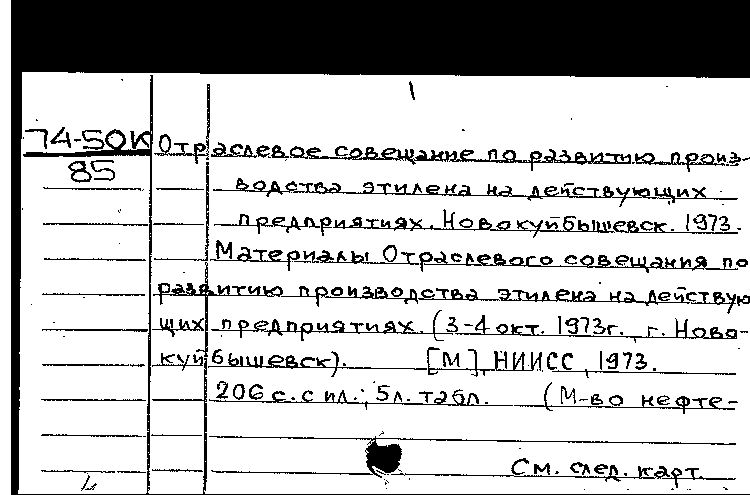 1
74-50К
85
Отраслевое совещание по развитию произ-
водства этилена на действующих
предприятиях. Новокуйбышевск. 1973.
Материалы Отраслевого совещания по
развитию производства этилена на действую
щих предприятиях. (3-4 окт. 1973г., г. Ново-
куйбышевск). [М], НИИСС, 1973.
206 с. с ил.; 5л. табл. (М-во нефте-
См. след. карт.